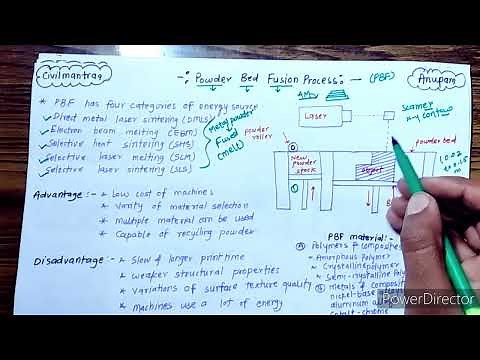 Civilmantrag
-: Powder Bed Fusion Process:- (PBF)
Anupam
* PBF has four categories of energy source
✓ Direct metal laser sintering (DMLS)
✓ Electron beam melting (EBM)
✓ Selective heat sintering (SHS)
✓ Selective laser melting (SLM)
✓ Selective laser sintering (SLS)
Metal powder
Fused
(melt)
AM
Laser
scanner
x-y
powder roller
powder bed
New
Powder
stock
object
Advantage:- * Low cost of machines
* Varity of material selection
* Multiple material can be used
* Capable of recycling powder
Disadvantage:- * Slow & longer print time
* weaker structural properties
* variations of surface texture quality
* Machines use a lot of energy
PBF material:-
Polymers &
* Amorphous Polymer
* Crystalline polymer
* Semi-crystalline
Metals &
nickel-base
aluminum
cobalt-chrome
PowerDirector